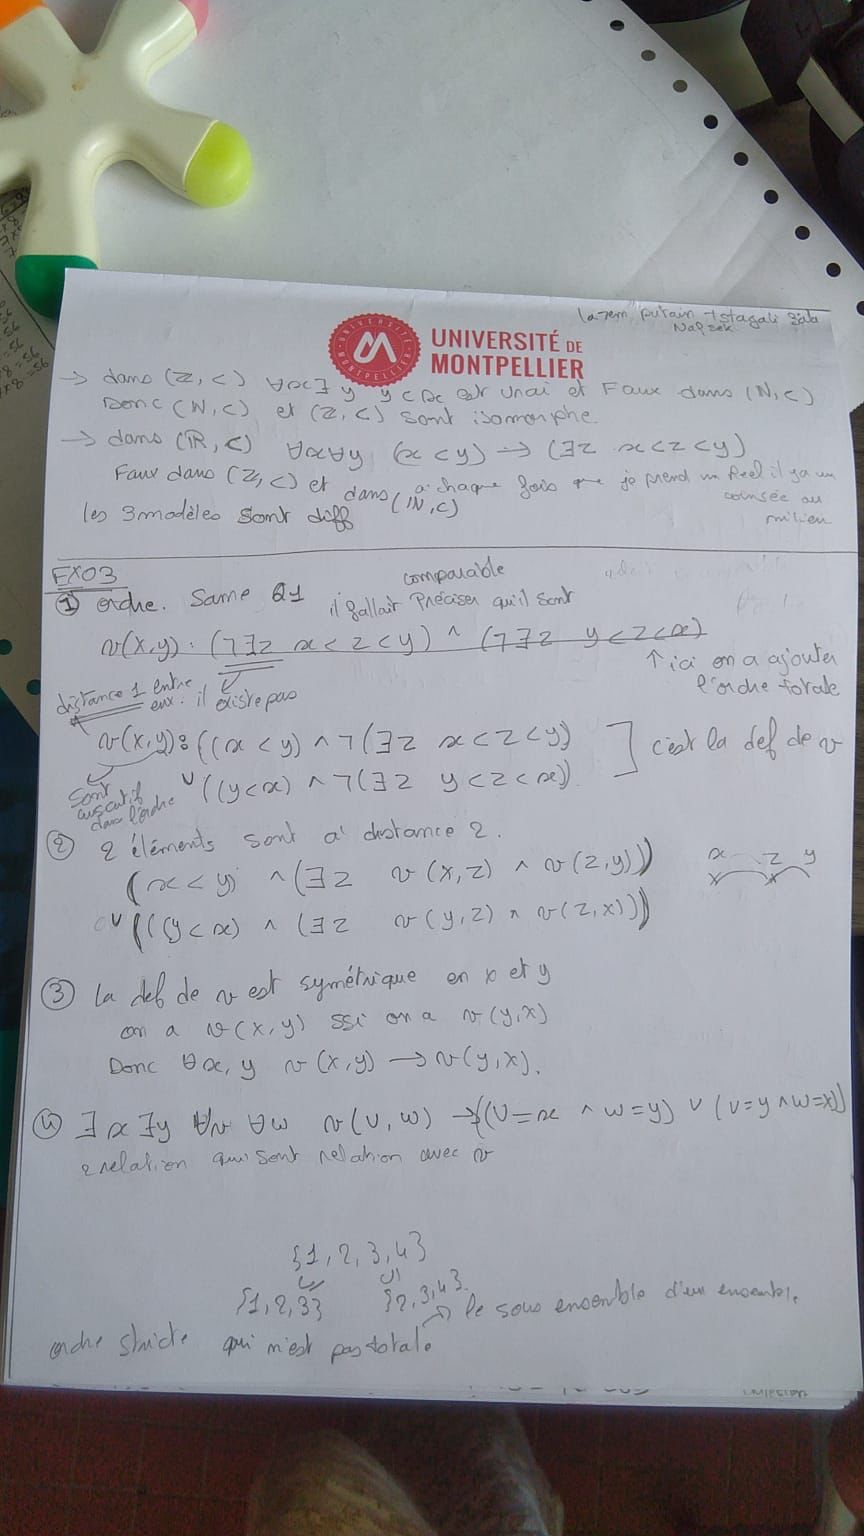 UNIVERSITÉ DE
MONTPELLIER
→ dans (Z, <) ∀x∃y y<x est vrai et Faux dans (N,<)
Donc (N,<) et (Z,<) sont isomorphe.
→ dans (R,<) ∀x∀y (x<y) → (∃z x<z<y)
Faux dans (Z,<) et dans (N,<)
à chaque fois que je prend un Reel il y a un
au
milieu
les 3 modèles sont diff
EXO3
① ordre. Same Q1
comparable
il fallait Préciser qu'il sont
v(x,y) : (¬∃z x<z<y) ∧ (¬∃z y<z<x)
↑ ici on a ajouter
l'ordre totale
distance 1 entre
eux : il existe pas
v(x,y) : ((x<y) ∧ ¬(∃z x<z<y))
∨ ((y<x) ∧ ¬(∃z y<z<x))
] c'est la def de v
sont
dans l'ordre
② 2 éléments sont a' distance 2.
(x<y) ∧ (∃z v(x,z) ∧ v(z,y)))
x z y
∨ (((y<x) ∧ (∃z v(y,z) ∧ v(z,x)))
③ la def de v est symétrique en x et y
on a v(x,y) ssi on a v(y,x)
Donc ∀x,y v(x,y) → v(y,x).
④ ∃x∃y ∀v ∀w v(v,w) → ((v=x ∧ w=y) ∨ (v=y ∧ w=x))
2 relation qui sont relation avec v
{1,2,3,4}
{1,2,3} {2,3,4}.
→ le sous ensemble d'un ensemble.
ordre stricte qui n'est pas totale.